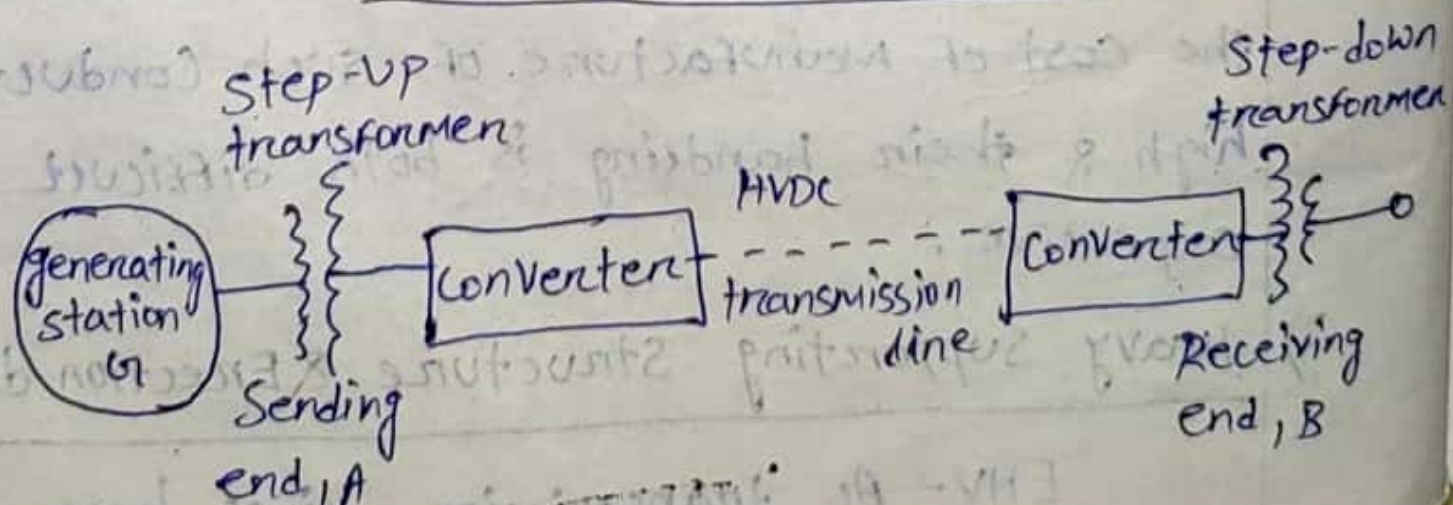 Step-up
transformer
Step-down
transformer
generating
station
G
Converter
HVDC
transmission
line
Converter
Sending
end, A
Receiving
end, B